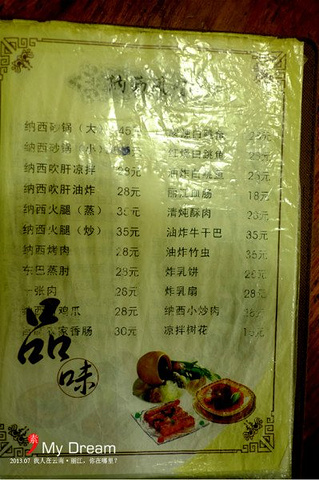 纳西风味
纳西砂锅（大） 45元
纳西砂锅（小）
纳西吹肝凉拌 28元
纳西吹肝油炸 28元
纳西火腿（蒸） 35元
纳西火腿（炒） 35元
纳西烤肉 28元
东巴蒸肘 28元
一张肉 28元
鸡爪 28元
家香肠 30元
白跳鱼
油炸白跳鱼
丽江血肠 18元
清炖酥肉 23元
油炸牛干巴 35元
油炸竹虫 35元
炸乳饼 26元
炸乳扇 28元
纳西小炒肉
凉拌树花
品味
素 My Dream
2013.07 我人在云南·丽江，你在哪里？